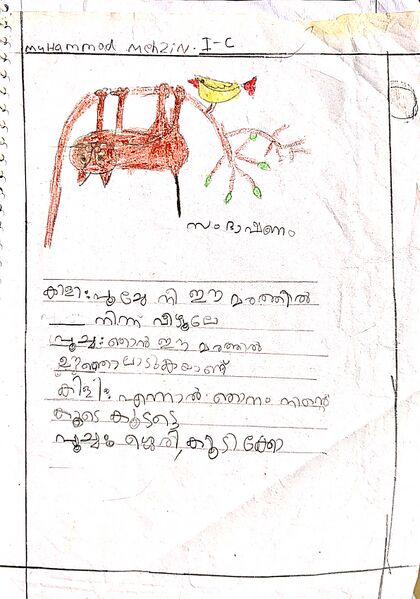 Muhammad Mehzin. I-C
സംഭാഷണം
കിളി: പൂച്ചേ നീ ഈ മരത്തിൽ
നിന്ന് വീഴൂലേ
പൂച്ച: ഞാൻ ഈ മരത്തിൽ
ഊഞ്ഞാലാടുകയാണ്
കിളി: എന്നാൽ ഞാനും നിന്റെ
കൂടെ കൂടട്ടെ
പൂച്ച: ശരി, കൂടിക്കോ